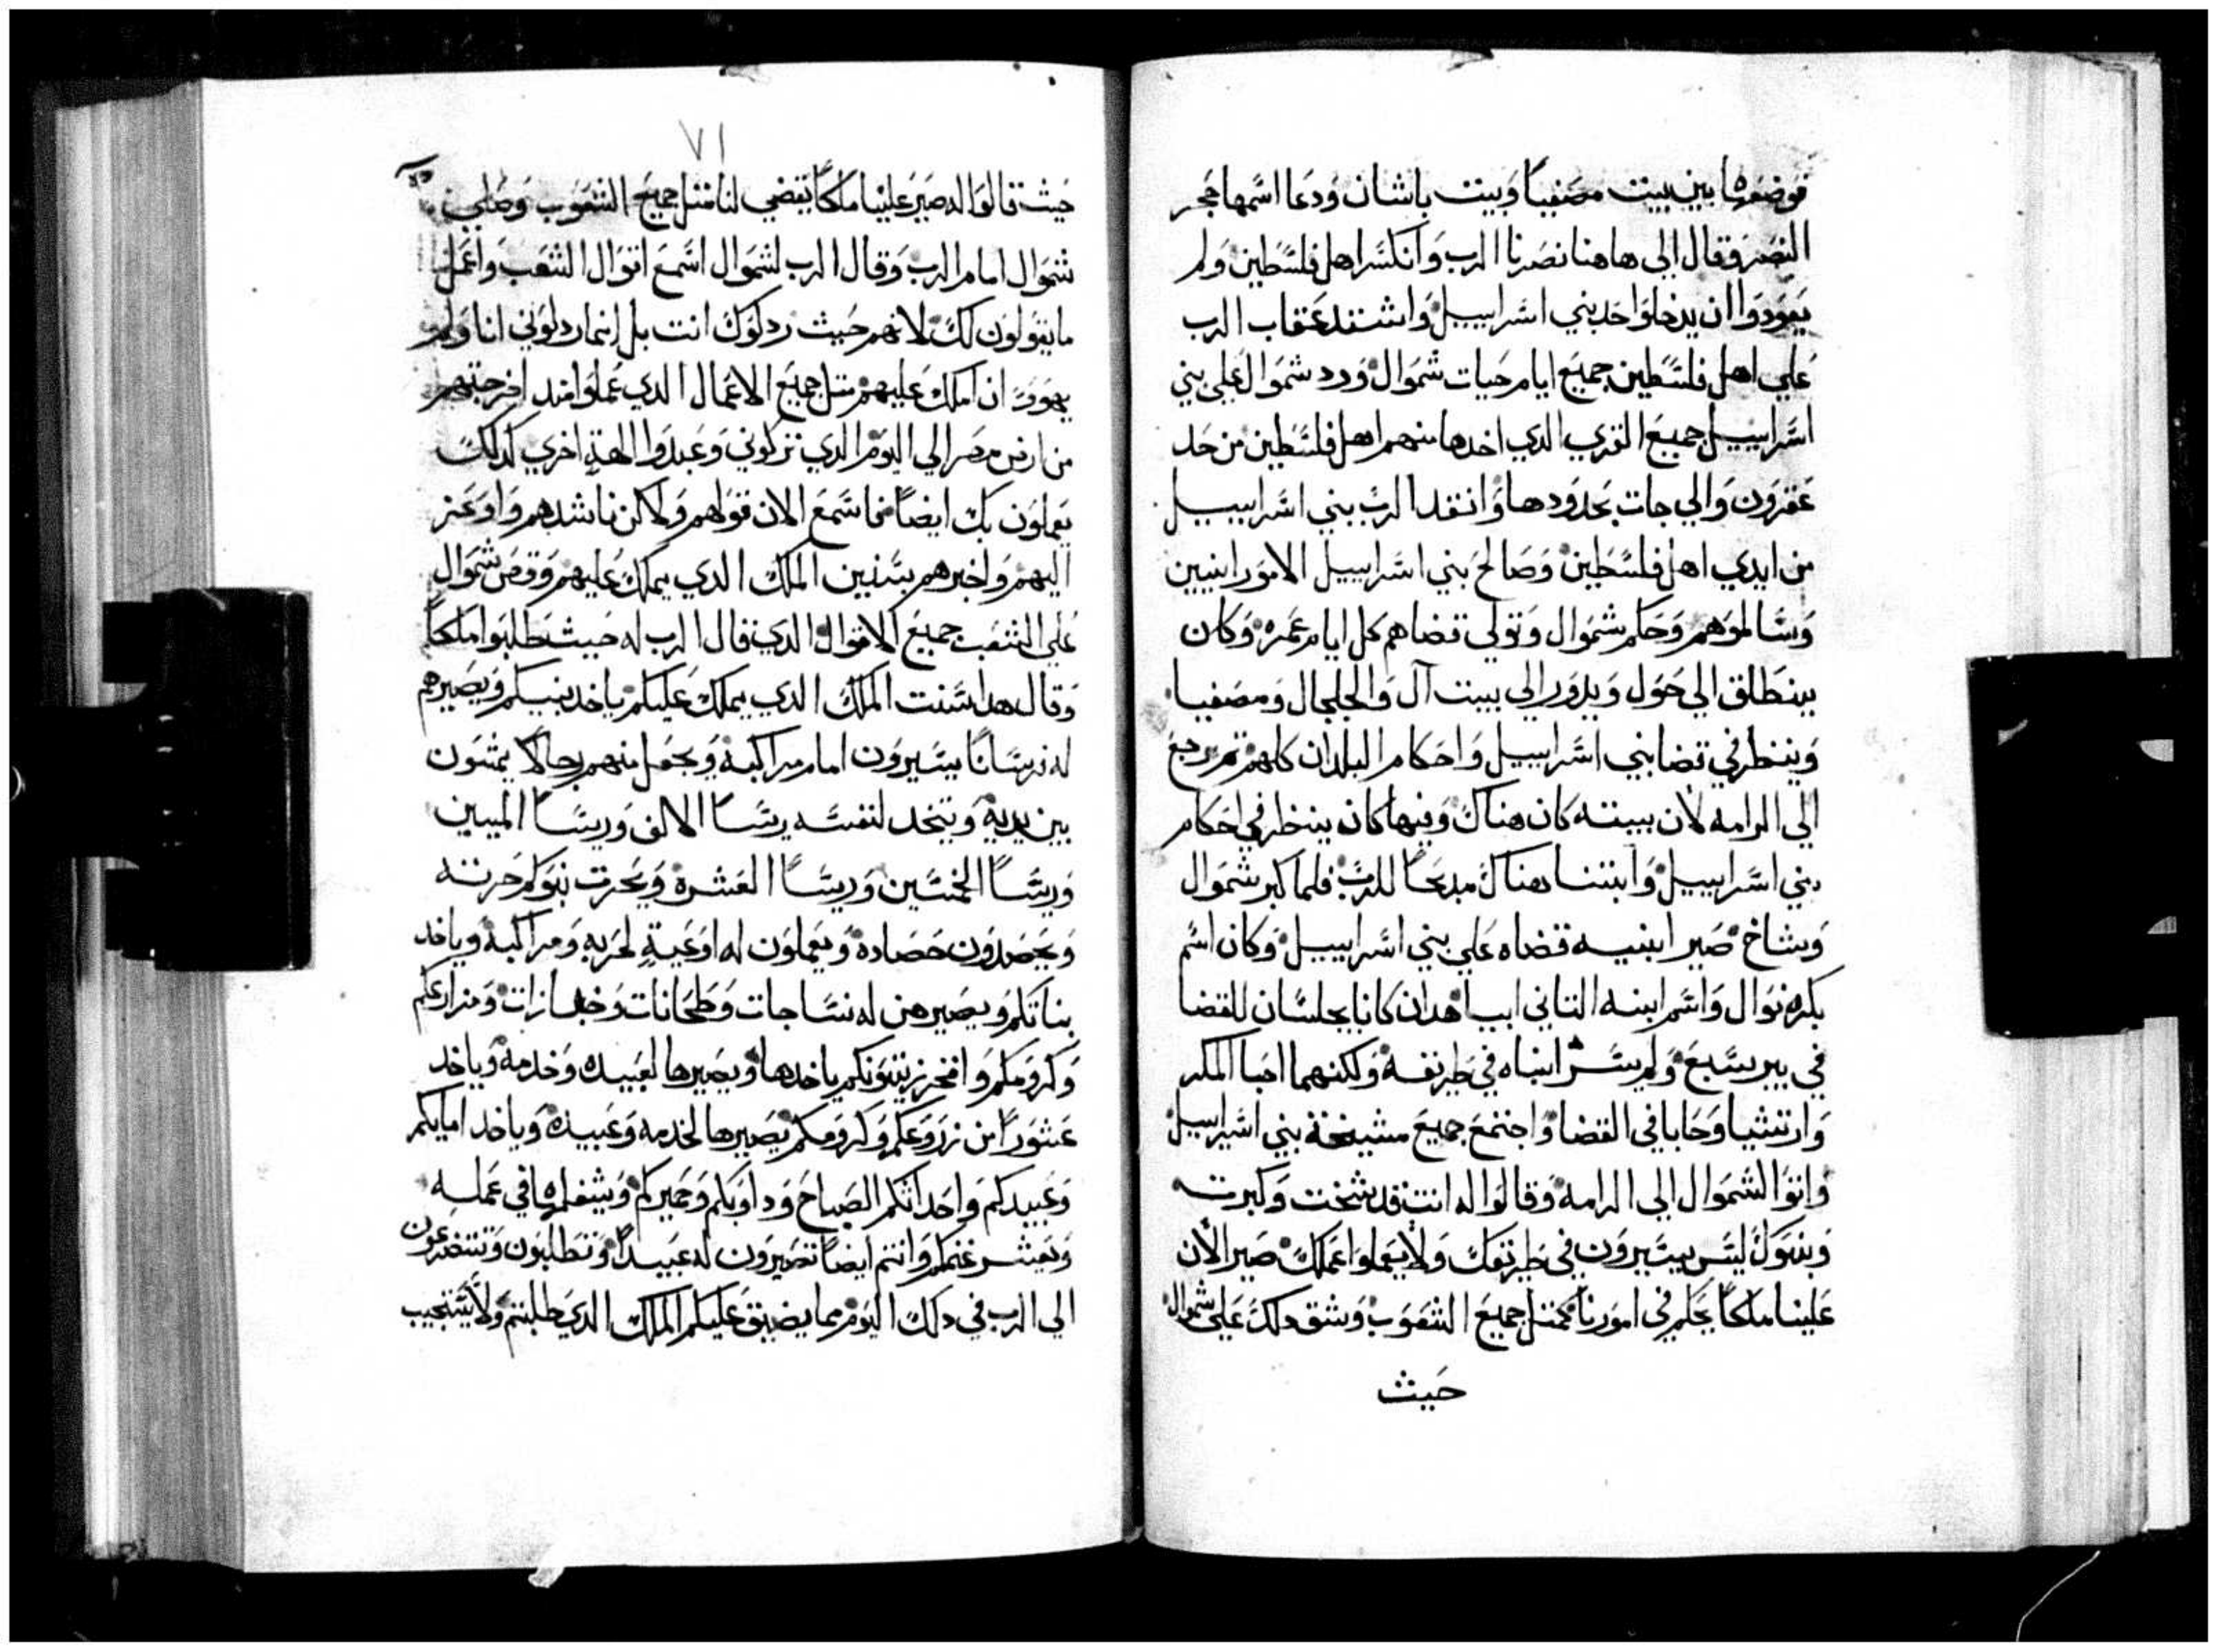 فوضعها بين بيت مصفيا وبيت باشان ودعا اسمها حجر
النصر وقال الي هاهنا نصرنا الرب وانكسر اهل فلسطين ولم
يعودوا ان يدخلوا حد بني اسراييل واشتد عقاب الرب
علي اهل فلسطين جميع ايام حيات شموال ورد شموال علي بني
اسراييل جميع القري الدي اخدها منهم اهل فلسطين من حد
عقرون والي جات بحدودها وانقد الرب بني اسراييل
من ايدي اهل فلسطين وصالح بني اسراييل الامورانيين
وسالموهم وحكم شموال وتولي قضاهم كل ايام عمره وكان
ينطلق الي حول ويدور الي بيت آل والجلجال ومصفيا
وينظر في قضا بني اسراييل واحكام البلدان كلهم تم رجع
الي الرامه لان بيته كان هناك وفيها كان ينظر في احكام
بني اسراييل وابتنا هناك مدبحا للرب فلما كبر شموال
وشاخ صير ابنيه قضاه علي بني اسراييل وكان اسم
بكره نوال واسم ابنه التاني ابيا هدان كانا يجلسان للقضا
في بير سبع ولم يسر ابناه في طريقه ولكنهما احبا المكر
وارتشيا وحابا في القضا واجتمع جميع مشيخة بني اسراييل
واتوا لشموال الي الرامه وقالوا له انت قد شخت وكبرت
وبنوك ليس يسيرون في طريقك ولا يعملوا عملك صير الأن
علينا ملكا يحكم في امورنا كمتل جميع الشعوب وشق دلك علي شموال
حيث
٧١
حيث قالوا له صير علينا ملكا يقضي لنا متل جميع الشعوب وصلي
شموال امام الرب وقال الرب لشموال اسمع اقوال الشعب واعمل
ما يقولون لك لانهم حيث ردلوك انت بل انما ردلوني انا ولم
يهوون ان املك عليهم متل جميع الاعمال الدي عملوا مند اخرجتهم
من ارض مصر الي اليوم الدي تركوني وعبدوا الهة اخري كدلك
يعملون بك ايضا فاسمع الان قولهم ولاكن ناشدهم واوعز
اليهم واخبرهم بسنين الملك الدي يملك عليهم وقص شموال
علي الشعب جميع الاقوال الدي قال الرب له حيث طلبوا ملكا
وقال هدا سنت الملك الدي يملك عليكم ياخد بنيكم ويصيرهم
له فرسانا يسيرون امام مراكبه ويجعل منهم رجالا يمشون
بين يديه ويتخد لنفسه ريسا الالف وريسا الميين
وريسا الخمسين وريسا العشرة ويحرت بنوكم حرته
ويحصدون حصاده ويعملون له اوعية لحربه ومراكبه وياخد
بناتكم ويصيرهن له نساجات وطحانات وخبازات ومزارعكم
وكرومكم وافخر زيتونكم ياخدها ويصيرها لعبيده وخدمه وياخد
عشورا من زروعكم وكرومكم يصيرها لخدمه وعبيده وياخد امايكم
وعبيدكم واحداتكم الصباح ودوابكم وحميركم ويشغلها في عمله
ويعشر غنمكم وانتم ايضا تصيرون له عبيدا وتطلبون وتتضرعون
الي الرب في دلك اليوم مما يضيق عليكم الملك الدي طلبتم ولا يستجيب